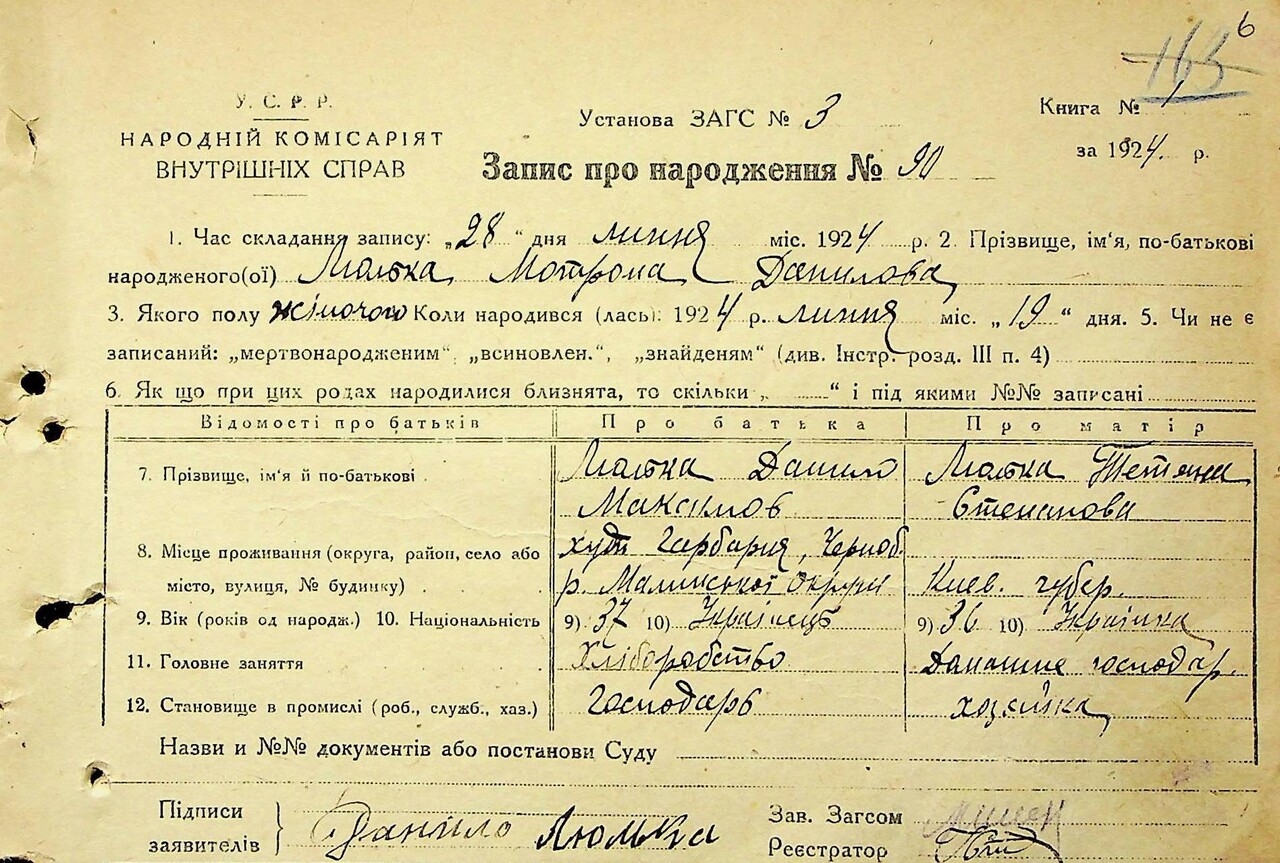 6
163
У. С. Р. Р.
НАРОДНІЙ КОМІСАРІЯТ
ВНУТРІШНІХ СПРАВ
Установа ЗАГС № 3
Книга № 1
за 1924 р.
Запис про народження № 90
1. Час складання запису: „28“ дня липня міс. 1924 р. 2. Прізвище, ім‘я, по-батькові
народженого(ої) Люлька Мотрона Данилова
3. Якого полу жіночого Коли народився (лась): 1924 р. липня міс. „19“ дня. 5. Чи не є
записаний: „мертвонародженим“, „всиновлен.“, „знайденям“ (див. Інстр. розд. III п. 4)
6. Як що при цих родах народилися близнята, то скільки „ “ і під якими №№ записані
Відомості про батьків Про батька Про матір
7. Прізвище, ім‘я й по-батькові Люлька Данило Люлька Тетяна
Максимов Степанова
8. Місце проживання (округа, район, село або хут. Гарбарня, Черноб.
місто, вулиця, № будинку) р. Малинської Округи Киев. губер.
9. Вік (років од народж.) 10. Національність 9) 37 10) Українець 9) 36 10) Українка
11. Головне заняття Хліборобство Домашне господар.
12. Становище в промислі (роб., служб., хаз.) Господарь хозяйка
Назви и №№ документів або постанови Суду
Підписи
заявителів Данило Люлька
Зав. Загсом
Реєстратор